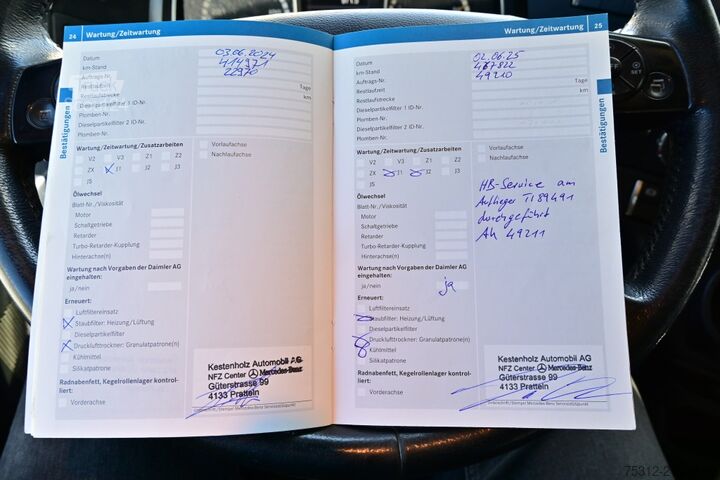 24 Wartung/Zeitwartung
Datum 03.06.2024
km-Stand 414971
Auftrags-Nr. 22970
Restlaufzeit Tage
Restlaufstrecke km
Dieselpartikelfilter 1 ID-Nr.
Plomben-Nr.
Dieselpartikelfilter 2 ID-Nr.
Plomben-Nr.
Bestätigungen
Wartung/Zeitwartung/Zusatzarbeiten
V2 V3 Z1 Z2
ZX J1 J2 J3
JS
Vorlaufachse
Nachlaufachse
Ölwechsel
Blatt-Nr./Viskosität
Motor
Schaltgetriebe
Retarder
Turbo-Retarder-Kupplung
Hinterachse(n)
Wartung nach Vorgaben der Daimler AG
eingehalten:
ja/nein
Erneuert:
Luftfiltereinsatz
Staubfilter: Heizung/Lüftung
Dieselpartikelfilter
Drucklufttrockner: Granulatpatrone(n)
Kühlmittel
Silikatpatrone
Radnabenfett, Kegelrollenlager kontrol-
liert:
Vorderachse
Kestenholz Automobil AG
NFZ Center Mercedes-Benz
Güterstrasse 99
4133 Pratteln
Wartung/Zeitwartung 25
Datum 02.06.25
km-Stand
Auftrags-Nr. 49210
Restlaufzeit Tage
Restlaufstrecke km
Dieselpartikelfilter 1 ID-Nr.
Plomben-Nr.
Dieselpartikelfilter 2 ID-Nr.
Plomben-Nr.
Bestätigungen
Wartung/Zeitwartung/Zusatzarbeiten
V2 V3 Z1 Z2
ZX J1 J2 J3
JS
Vorlaufachse
Nachlaufachse
HB-Service am
Auflieger TI89491
durchgeführt
AN 49211
Ölwechsel
Blatt-Nr./Viskosität
Motor
Schaltgetriebe
Retarder
Turbo-Retarder-Kupplung
Hinterachse(n)
Wartung nach Vorgaben der Daimler AG
eingehalten:
ja/nein ja
Erneuert:
Luftfiltereinsatz
Staubfilter: Heizung/Lüftung
Dieselpartikelfilter
Drucklufttrockner: Granulatpatrone(n)
Kühlmittel
Silikatpatrone
Radnabenfett, Kegelrollenlager kontrol-
liert:
Vorderachse
Kestenholz Automobil AG
NFZ Center Mercedes-Benz
Güterstrasse 99
4133 Pratteln